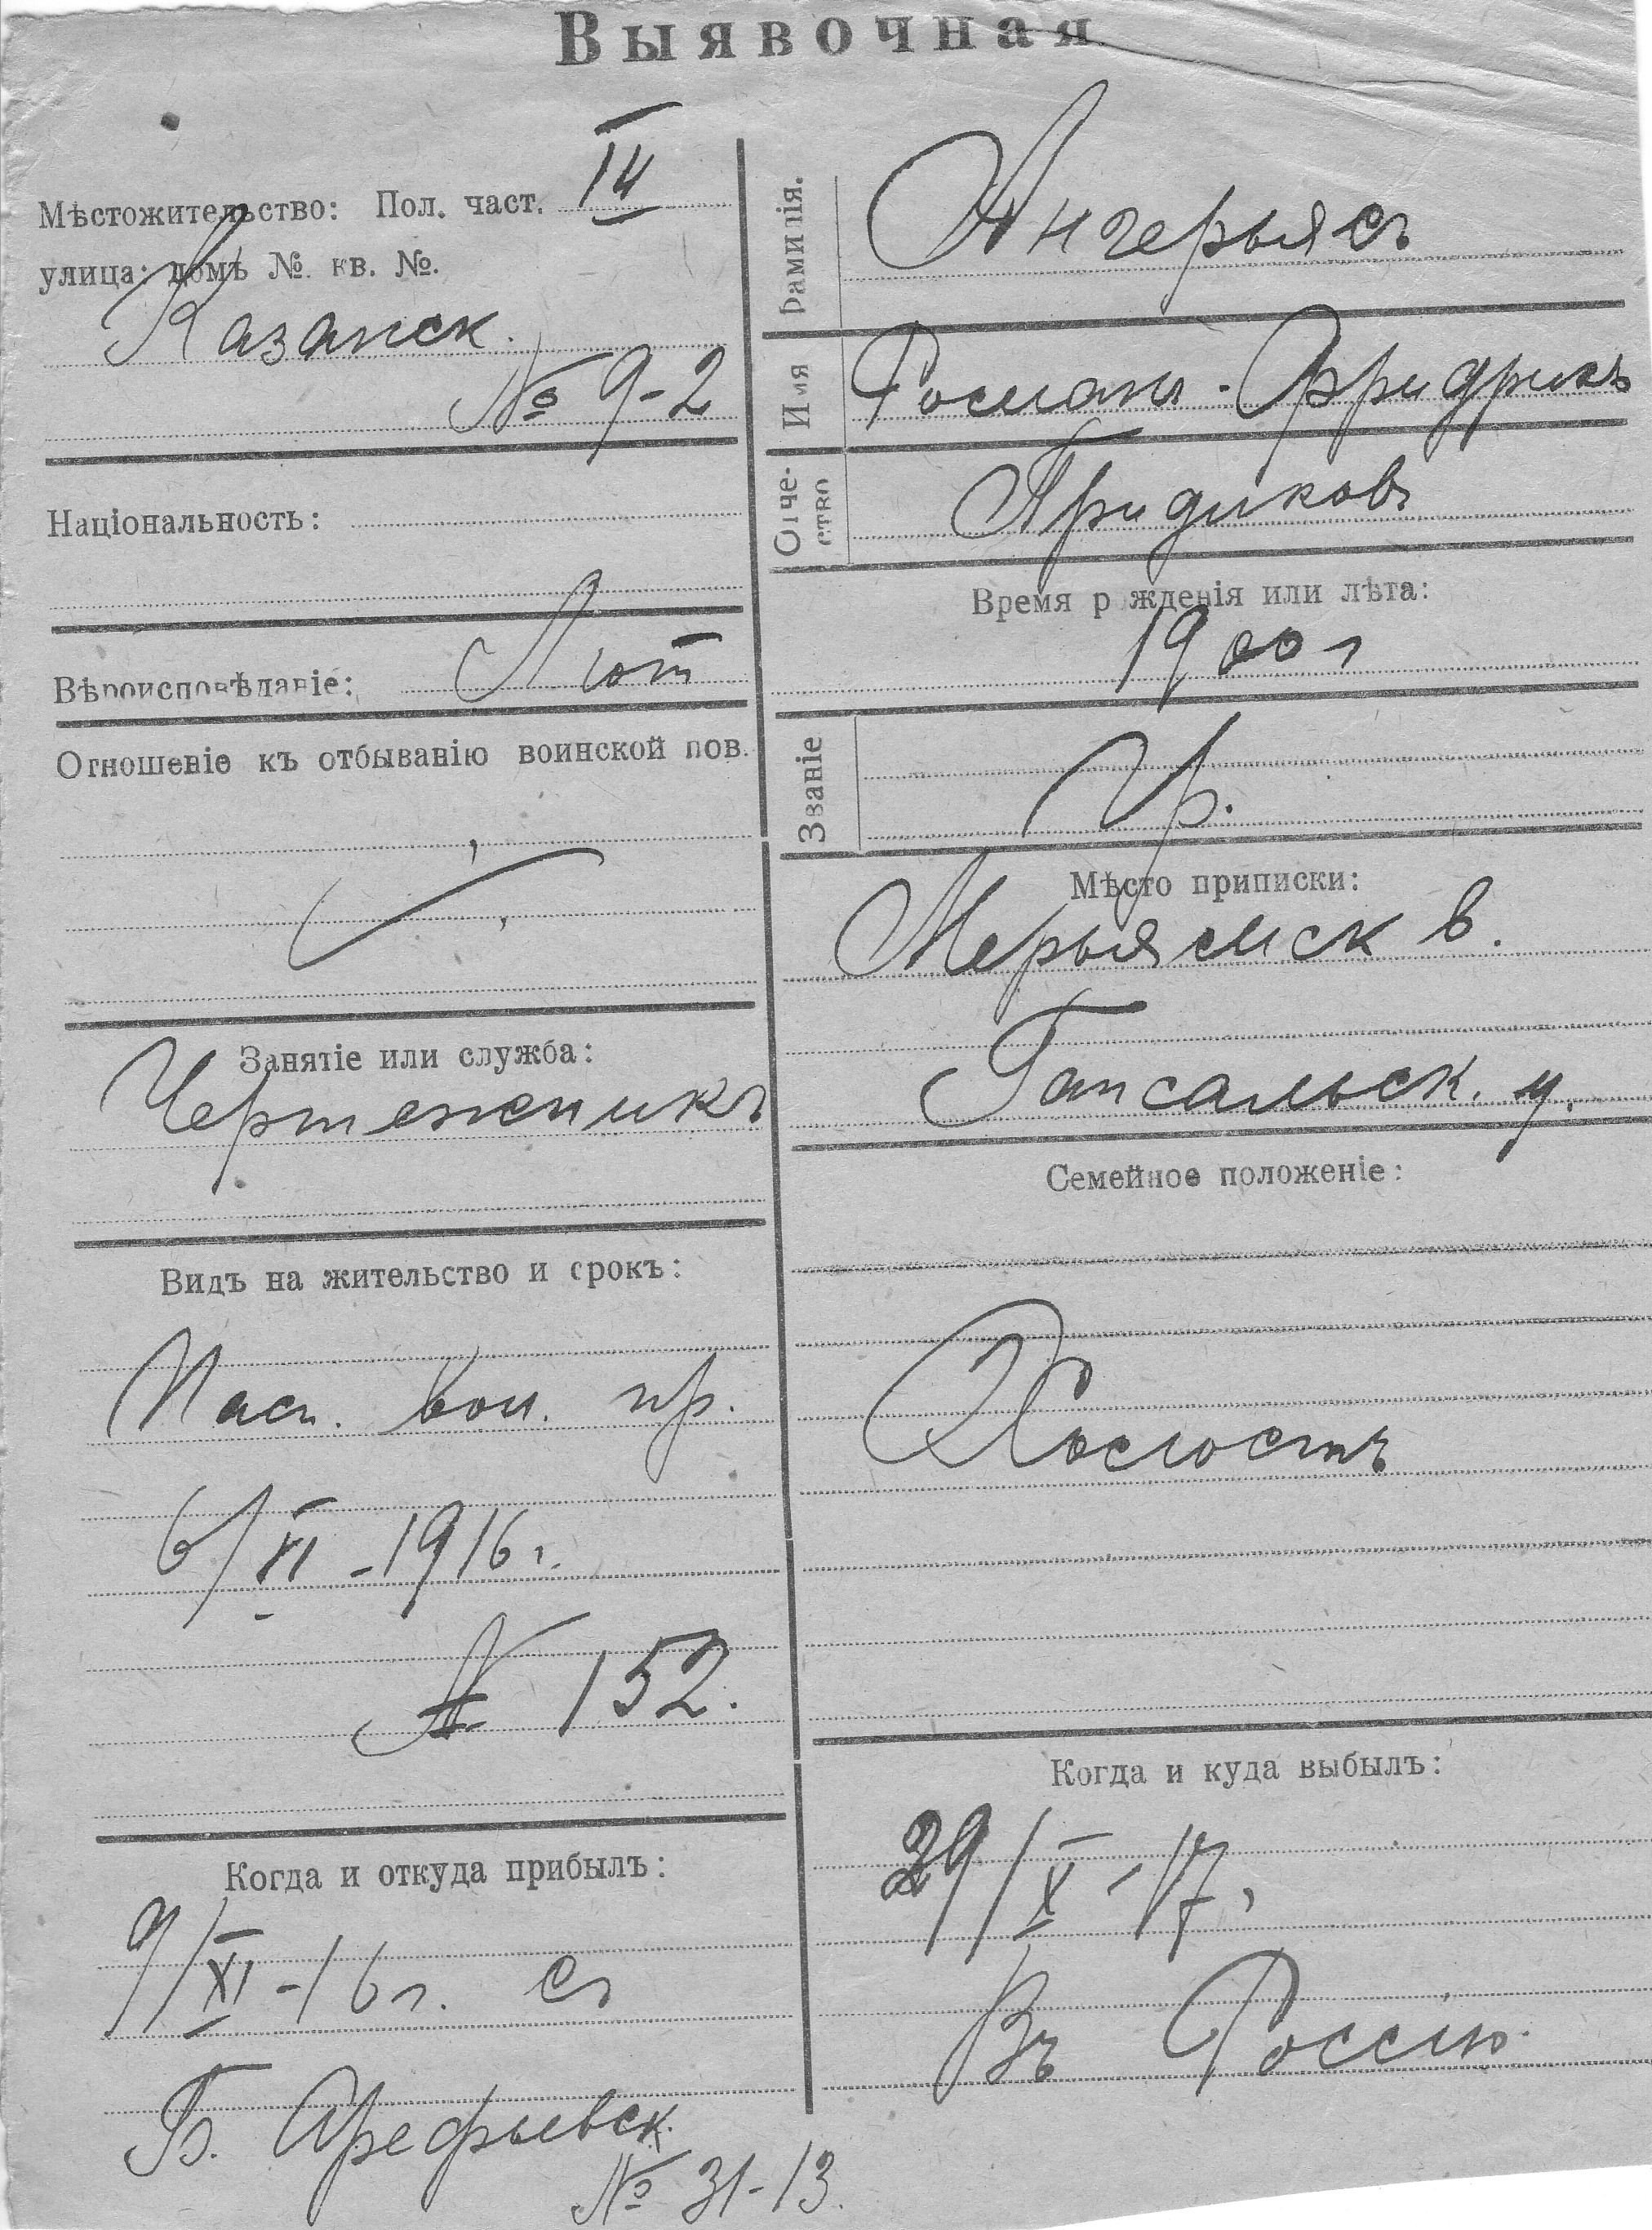 Выявочная
Мѣстожительство: Пол. част. IV
улица: домъ №. кв. №.
Казанск.
№ 9-2
Національность:
Вѣроисповѣданіе: Лют
Отношеніе къ отбыванію воинской пов.
Занятіе или служба:
Чертежникъ
Видъ на жительство и срокъ:
Пасп. вол. пр.
6/XI -1916 г.
№ 152.
Когда и откуда прибылъ:
9/XI -16 г. съ
Б. Арефьевск.
№ 31-13.
Фамилія. Ангерьясъ
Имя Романъ - Фридрихъ
Отчество Придиковъ
Время рожденія или лѣта:
1900 г
Званіе
Кр.
Мѣсто приписки:
Мерьямск в.
Гапсальск. у.
Семейное положеніе:
Холостъ
Когда и куда выбылъ:
29/X -17 г
Въ Россію.